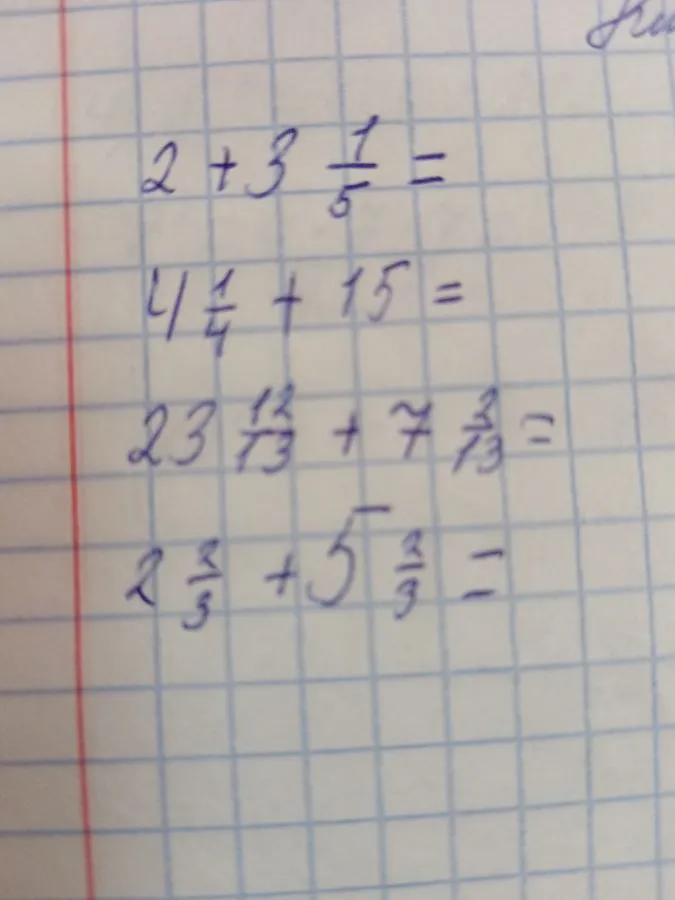 2 + 3 1/5 =
4 1/4 + 15 =
23 12/13 + 7 2/13 =
2 2/3 + 5 2/3 =